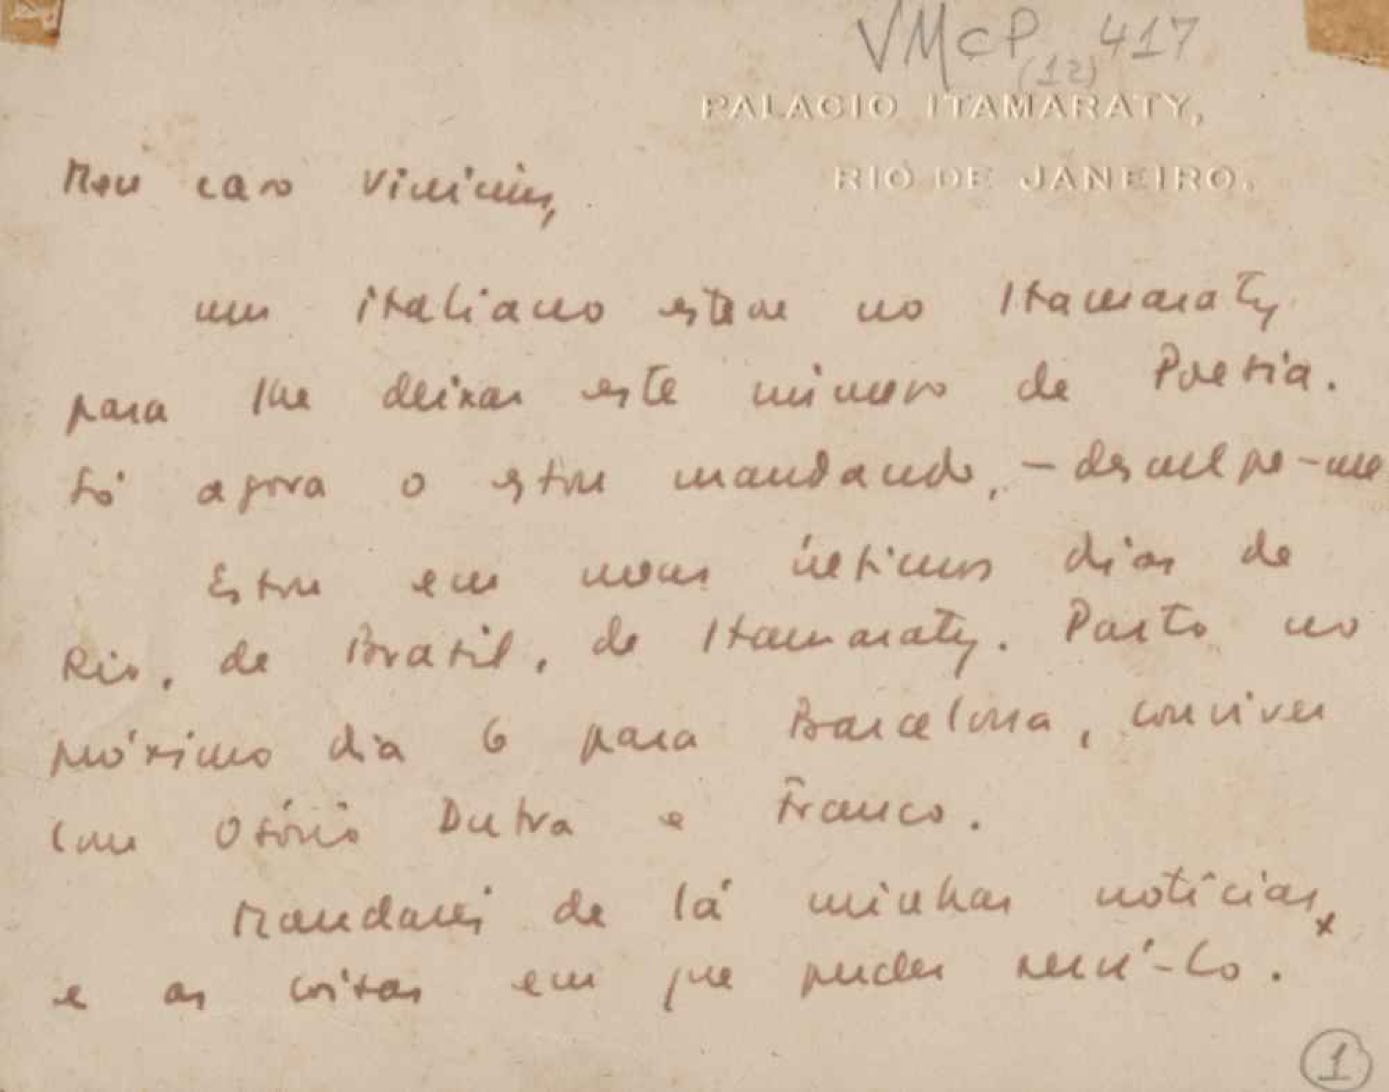 VMCP 417
(12)
PALACIO ITAMARATY,
RIO DE JANEIRO.
Meu caro Vinicius,
um italiano esteve no Itamaraty
para lhe deixar este número de Poesia.
Só agora o estou mandando, – desculpe-me
Estou em meus últimos dias de
Rio, de Brasil, de Itamaraty. Parto no
próximo dia 6 para Barcelona, conviver
com Osório Dutra e Franco.
Mandarei de lá minhas notícias,
e as coisas em que puder serví-lo.
1